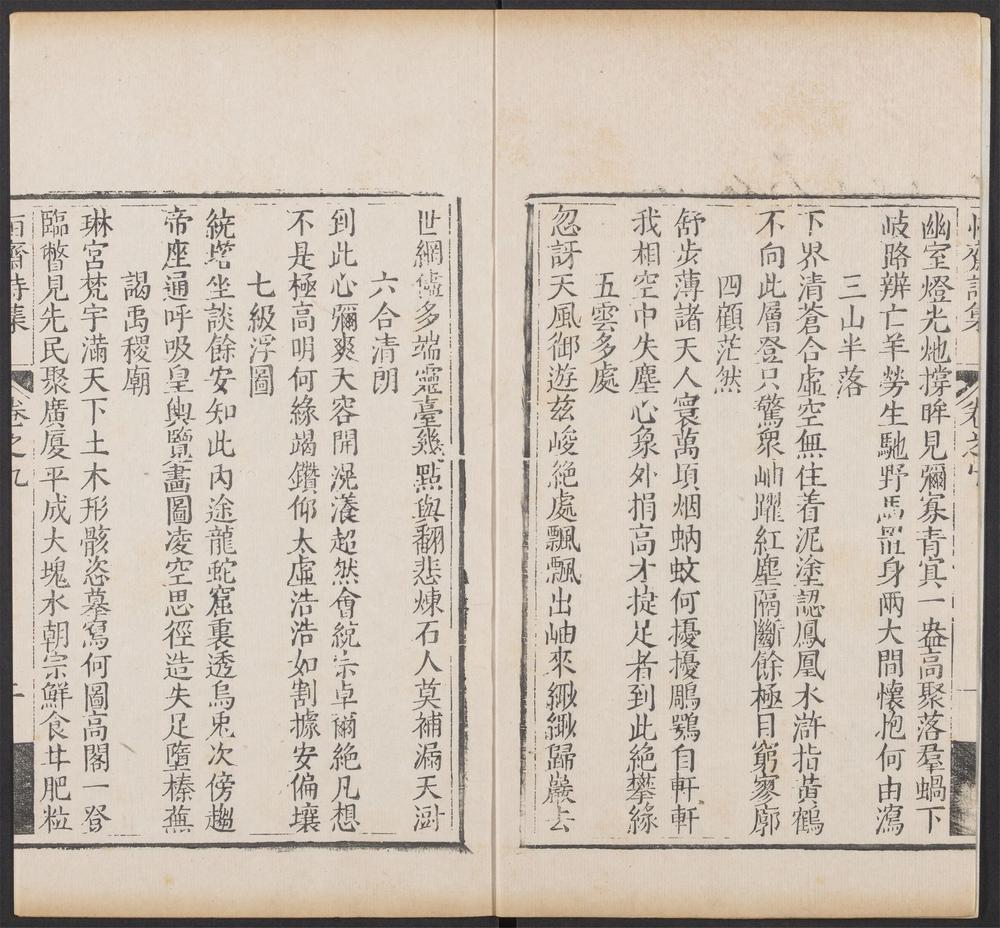 齋詩集 卷之
幽室燈光灺撐眸見瀰寡青寘一盎高聚落羣蝸下
岐路辨亡羊勞生馳野馬置身兩大間懷抱何由瀉
三山半落
下界清蒼合虛空無住着泥塗認鳳凰水滸指黃鶴
不向此層登只驚衆岫躍紅塵隔斷餘極目窮寥廓
四顧茫然
舒步薄諸天人寰萬頃烟蚋蚊何擾擾鵰鶚自軒軒
我相空中失塵心象外捐高才捷足者到此絕攀緣
五雲多處
忽訝天風御遊茲峻絕處飄飄出岫來緻緻歸巖去
世網儘多端靈臺幾點與翻悲煉石人莫補漏天澍
六合清朗
到此心彌爽大容開滉瀁超然會統宗卓爾絕凡想
不是極高明何緣竭鑽仰太虛浩浩如割據安偏壤
七級浮圖
統塔坐談餘安知此內途龍蛇窟裏透烏兎次傍趨
帝座通呼吸皇輿覽畫圖凌空思徑造失足墮榛蕪
謁禹稷廟
琳宮梵宇滿天下土木形骸恣摹寫何圖高閣一登
臨瞥見先民聚廣廈平成大塊水朝宗鮮食廿肥粒
齋詩集 卷之九 二